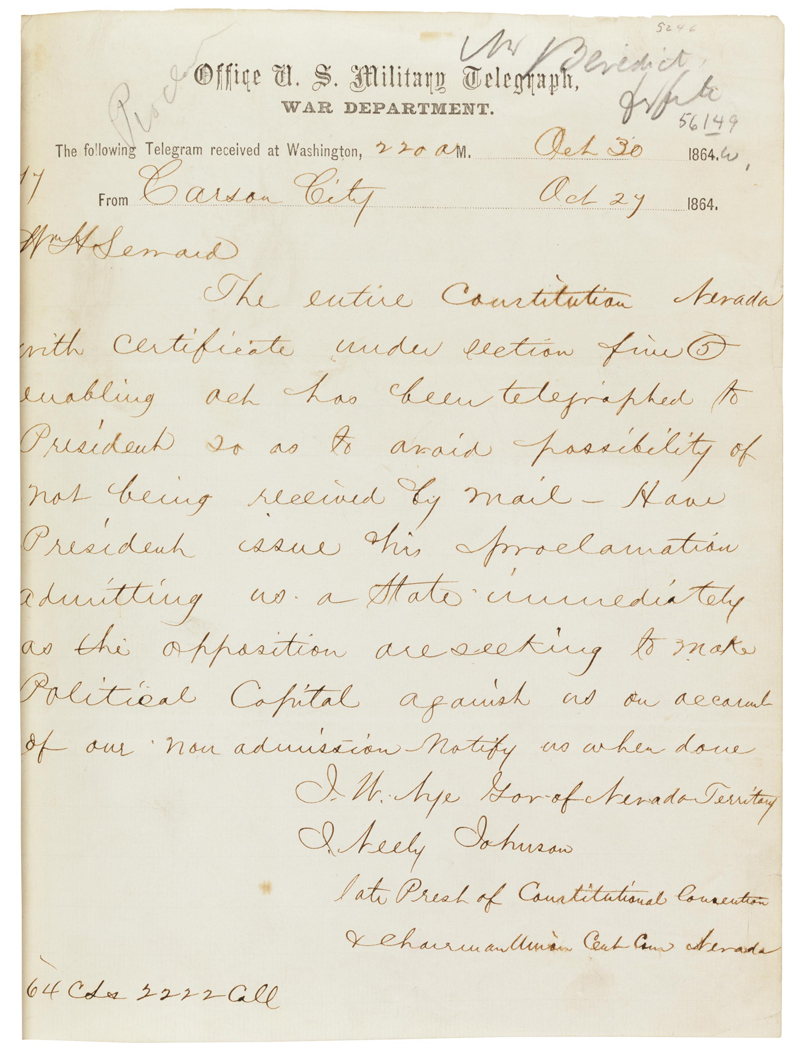 5246
Mr Benedict
Office U. S. Military Telegraph,
WAR DEPARTMENT.
56149
The following Telegram received at Washington, 220 a M. Oct 30 1864.
17
From Carson City Oct 27 1864.
Wm H Seward
The entire Constitution Nevada
with certificate under section five (5)
enabling act has been telegraphed to
President so as to avoid possibility of
not being received by mail – Have
President issue his proclamation
admitting us a State immediately
as the opposition are seeking to make
Political Capital against us on account
of our non admission Notify us when done
J. W. Nye Gov of Nevada Territory
J. Neely Johnson
late Prest of Constitutional Convention
& Chairman Union Cent Com Nevada
64 2222 Coll